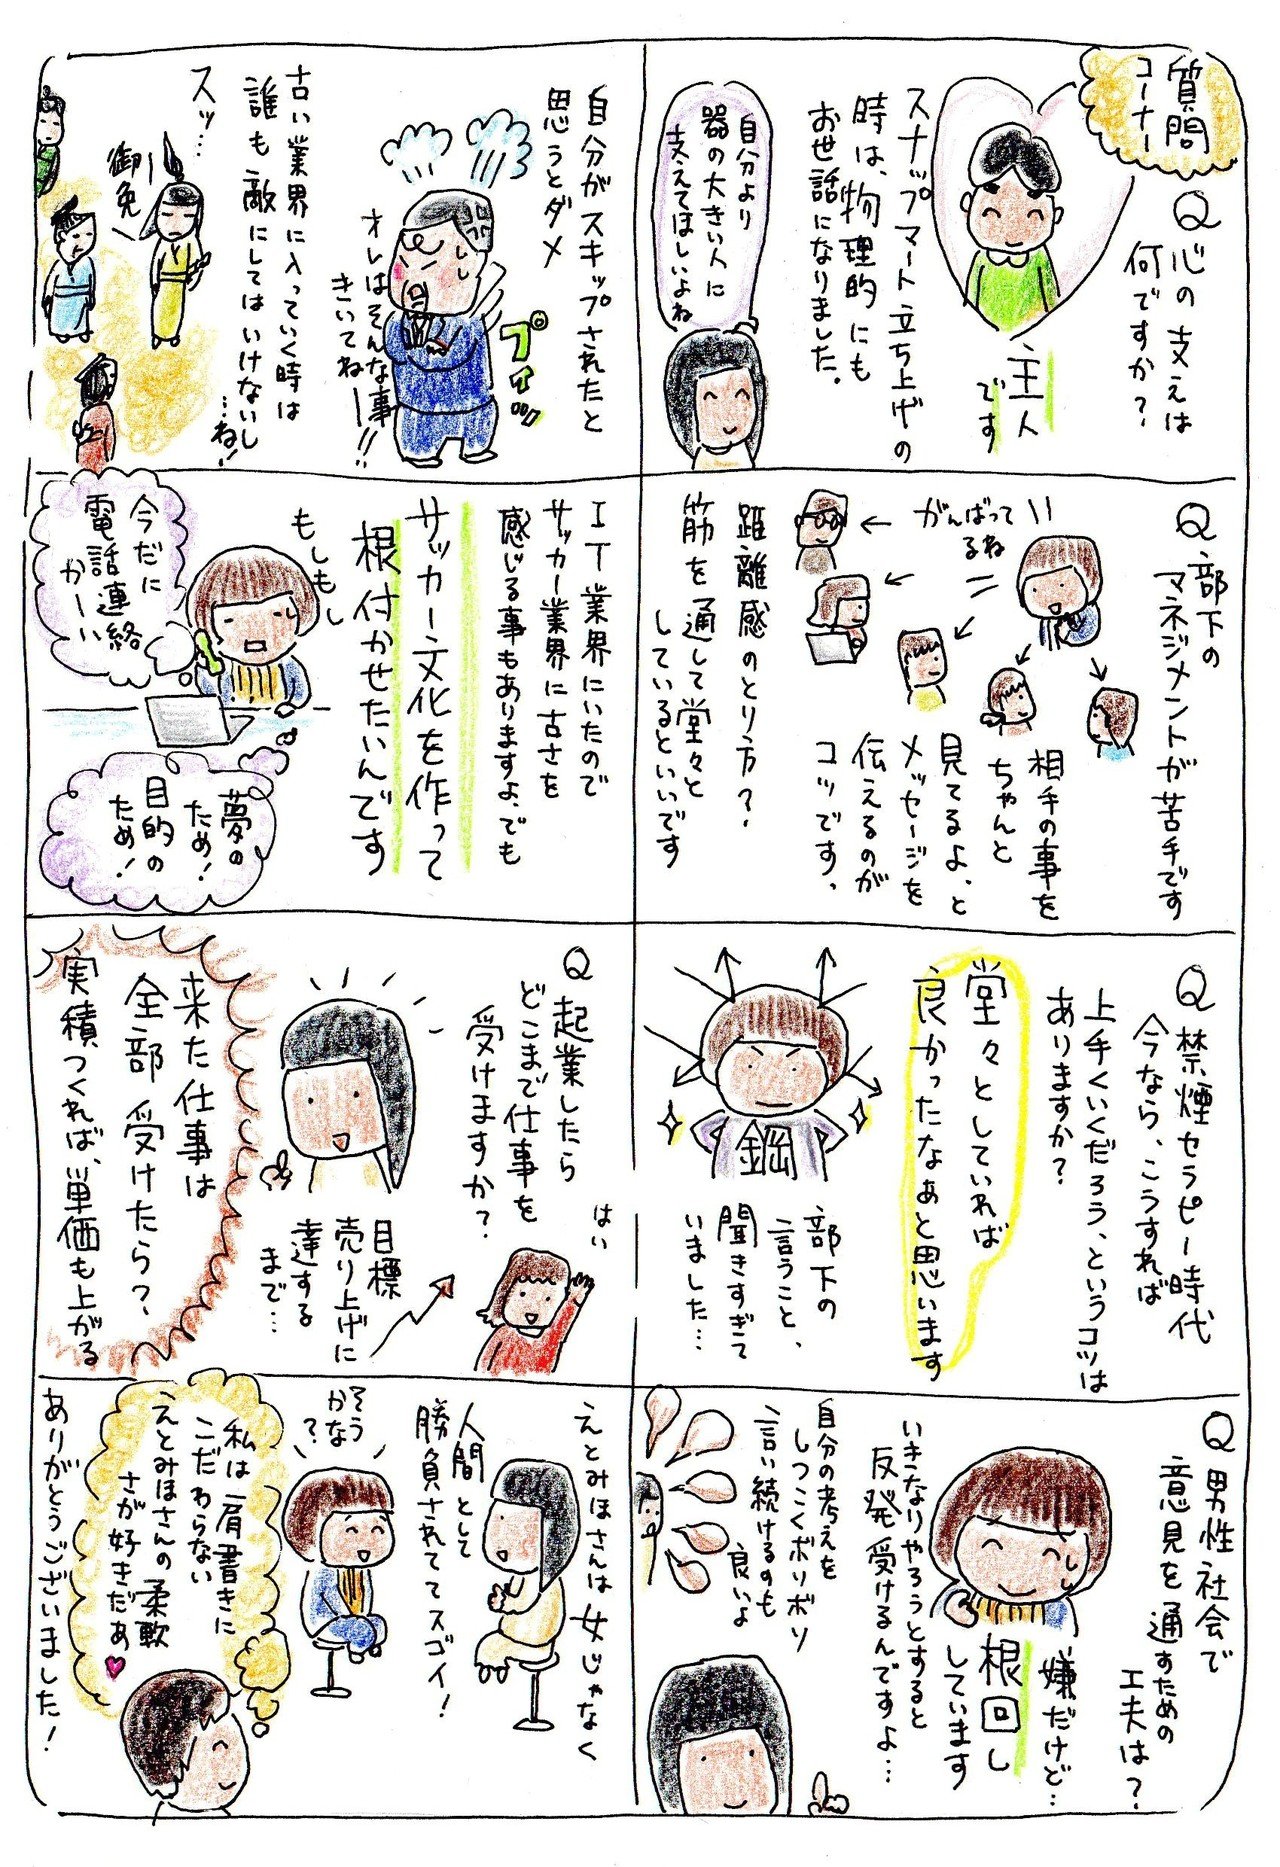 質問
コーナー
Q心の支えは
何ですか？
主人
です
スナップマート立ち上げの
時は、物理的にも
お世話になりました。
自分より
器の大きい人に
支えてほしいよね
Q部下の
マネジメントが苦手です
がんばって
るね
相手の事を
ちゃんと
見てるよ、と
メッセージを
伝えるのが
コツです。
距離感のとり方？
筋を通して堂々と
しているといいです
Q禁煙セラピー時代
今なら、こうすれば
上手くいくだろう、というコツは
ありますか？
堂々としていれば
良かったなあと思います
鋼
部下の
言うこと、
聞きすぎて
いました…
Q男性社会で
意見を通すための
工夫は？
嫌だけど…
根回し
しています
いきなりやろうとすると
反発受けるんですよ…
自分の考えを
しつこくボリボリ
言い続けるのも
良いよ
自分がスキップされたと
思うとダメ
プイッ
オレはそんな事
きいてねーー!!
古い業界に入っていく時は
誰も敵にしてはいけないし
…ね！
スッ…
御免
IT業界にいたので
サッカー業界に古さを
感じる事もありますよ、でも
サッカー文化を作って
根付かせたいんです
もしもし
今だに
電話連絡
かーい
夢の
ため！
目的の
ため！
Q起業したら
どこまで仕事を
受けますか？
はい
目標
売り上げに
達する
まで…
来た仕事は
全部受けたら？
実積つくれば、単価も上がる
えとみほさんは女じゃなく
人間として
勝負されててスゴイ！
そう
かな
？
私は肩書きに
こだわらない
えとみほさんの柔軟
さが好きだあ
ありがとうございました！